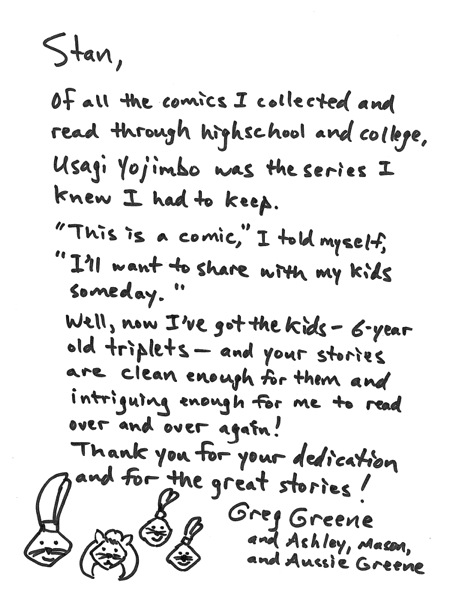 Stan,
Of all the comics I collected and
read through highschool and college,
Usagi Yojimbo was the series I
knew I had to keep.
"This is a comic," I told myself,
"I'll want to share with my kids
someday."
Well, now I've got the kids – 6-year
old triplets – and your stories
are clean enough for them and
intriguing enough for me to read
over and over again!
Thank you for your dedication
and for the great stories!
Greg Greene
and Ashley, Mason,
and Aussie Greene